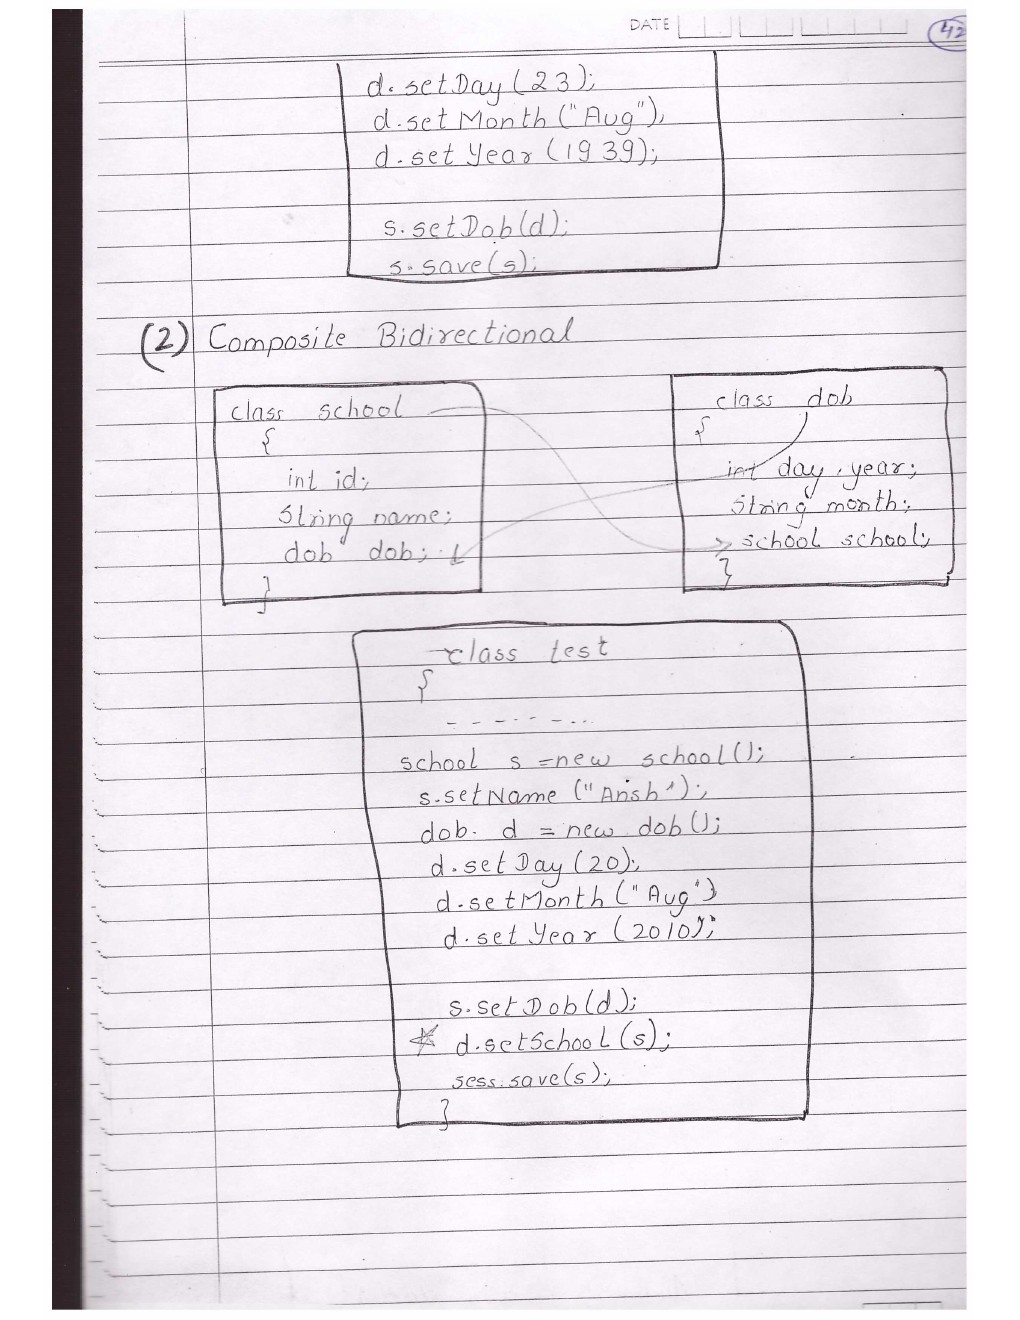 DATE
42
d. setDay (23);
d. set Month ("Aug"),
d. set Year (1939);
s. setDob(d);
s. save(s);
(2) Composite Bidirectional
class school
{
int id;
String name;
dob dob;
}
class dob
{
int day, year;
String month;
school school;
}
class test
{
- - - - - - ...
school s =new school();
s.setName ("Arish");
dob. d = new dob();
d. set Day (20);
d. setMonth ("Aug")
d. set Year (2010);
s. set Dob(d);
* d.setSchool (s);
sess. save(s);
}